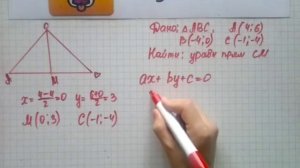 Дано: △ABC, A(4;6)
B(-4;0) C(-1;-4)
Найти: уравн прям CM
C
A M B
ax + by + c = 0
x = 4-4/2 = 0 y = 6+0/2 = 3
M(0;3) C(-1;-4)